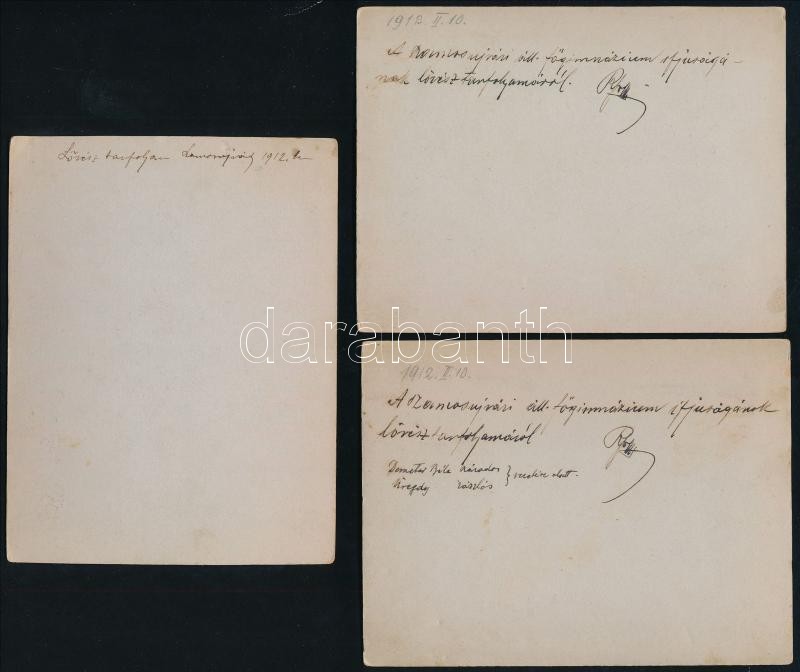 Lövész tanfolyam Szamosujvár 1912.
1912. II. 10.
A Szamosujvári áll. főgimnázium ifjuságá-
nak lövész tanfolyamáról.
darabanth
1912. II. 10.
A Szamosujvári áll. főgimnázium ifjuságának
lövész tanfolyamáról
Demeter Béla százados
vezetése alatt.
zászlós